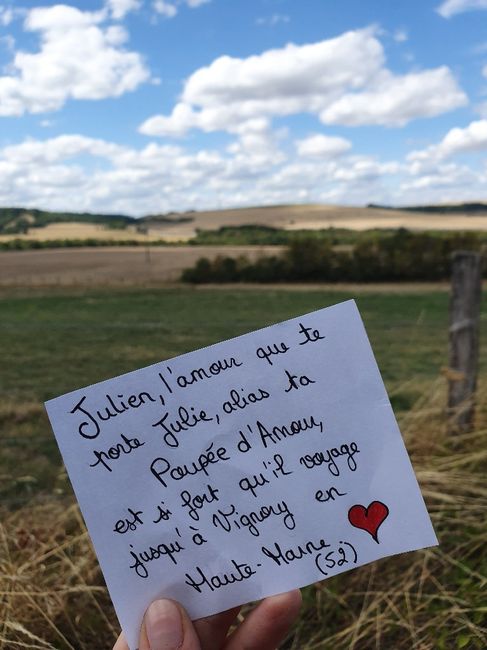 Julien, l'amour que te
porte Julie, alias ta
Poupée d'Amour,
est si fort qu'il voyage
jusqu'à Vignory en
Haute-Marne
(52)